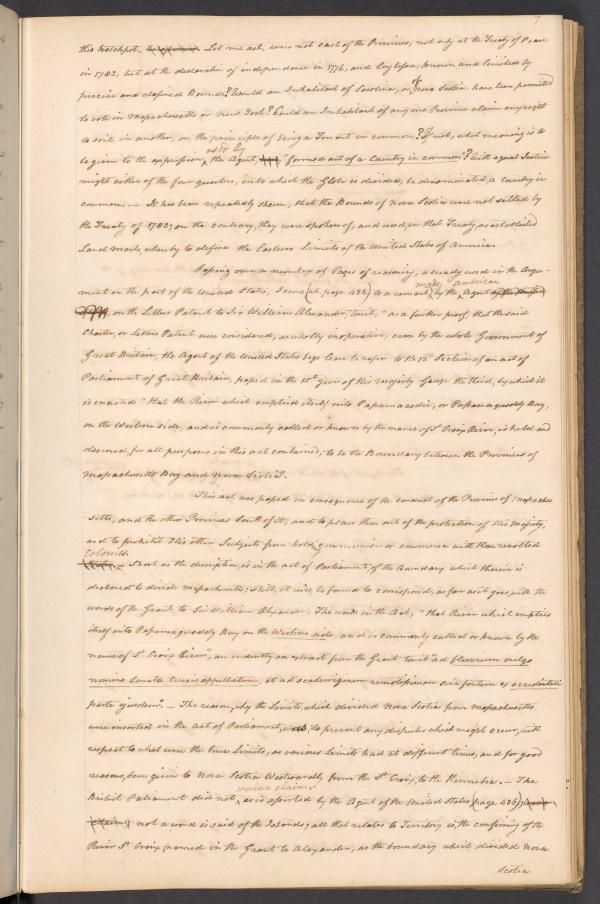 7
this hotchpot. Let me ask, were not each of the Provinces, not only at the Treaty of Peace
in 1783, but at the declaration of independence in 1776, and long before, known and limited by
precise and defined Bounds? Would an Inhabitant of Carolina, or of Nova Scotia have been permitted
to vote in Massachusetts or New York? Could an Inhabitant of any one Province claim any right
to soil in another, on the principle of being a Tenant in common? If not, what meaning is to
be given to the expression used by the Agent "formed out of a Country in common"? With equal Justice
might either of the four quarters, into which the Globe is divided, be denominated, a Country in
common. — It has been repeatedly shewn, that the Bounds of Nova Scotia were not settled by
the Treaty of 1783; on the contrary, they were spoken of, and used, in that Treaty, as established
Land marks, whereby to define the Eastern Limits of the United States of America.
Passing over a number of Pages of reasoning, already used in the Argu-
ment on the part of the United States, I come (at page 436) to a remark, made by the American Agent
on the Letters Patent to Sir William Alexander, that, "as a further proof that the said
Charter, or Letters Patent were considered, as wholly inoperative, even by the whole Government of
Great Britain, the Agent of the United States begs leave to refer to the 12th Section of an act of
Parliament of Great Britain, passed in the 15th year of His Majesty George the third, by which it
is enacted "that the River which emptied itself into Passamacadie, or Passamaquoddy Bay,
on the Western side, and is commonly called or known by the name of St Croix River, is held and
deemed, for all purposes in this act contained, to be the Boundary between the Provinces of
Massachusetts Bay and Nova Scotia".
This act was passed in consequence of the conduct of the Province of Massachu
setts, and the other Provinces South of it, and to place them out of the protection of His Majesty,
and to prohibit His other Subjects from holding communion or commerce with those revolted
Colonies. Short as the description is in the act of Parliament, of the Boundary which therein is
declared to divide Massachusetts; still, it will be found to correspond, as far as it goes, with the
words of the Grant to Sir William Alexander. The words in the Act, "that River which empties
itself into Passamaquoddy Bay, on the Western side, and is commonly called or known by the
name of St Croix River", are evidently an extract from the Grant "ad fluvium vulgo
nomine Sanctae Crucis appellatum, et ad scaturiginem remotissimam sive fontem ex occidentali
parte ejusdem". — The reason, why the Limits, which divided Nova Scotia from Massachusetts
were inserted in the Act of Parliament, was, to prevent any disputes which might occur, with
respect to what were the true Limits, as various Limits had at different times, and for good
reasons, been given to Nova Scotia Westwardly from the St Croix, to the Kennebec. — The
British Parliament did not, as is asserted by the Agent of the United States (page 436), waive claims;
not a word is said of the Islands; all that relates to Territory is, the confirming of the
River St Croix, named in the Grant to Alexander, as the boundary which divided Nova
Scotia